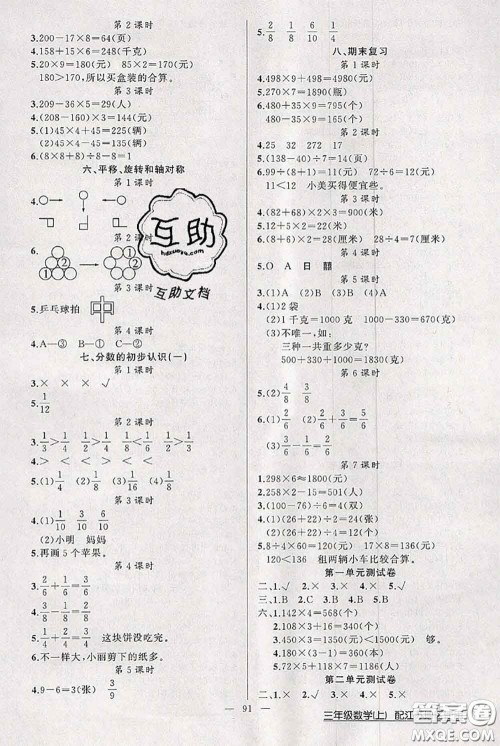 第2课时
3.200-17×8=64(页)
4.158+15×6=248(千克)
5.20×9=180(元) 205-35=170(元)
180>170,所以买盒装的合算。
第3课时
3.209-36×5=29(人)
4.(208-160)×3=144(元)
5.(1)45×4+45=225(辆)
(2)45×4-45=135(辆)
6.(8×8+8)÷8-8=1
六、平移、旋转和轴对称
第1课时
3.
4.
第2课时
6.
① ② ① ②
第3课时
5.乒乓球拍 中
第4课时
4.A—③ B—① C—②
七、分数的初步认识(一)
第1课时
3.× × × √
5. 1/12
第2课时
4. 1/3>1/4 1/2>1/5 1/7>1/9 1/2<1/1
5.(1)1/4 (2)1/8 (3)1/16 (4)1/8
第3课时
4.(1)1/10 3/10 3/10
(2)小明 妈妈
5.再画5个苹果。
第4课时
4. 1/6+2/6=3/6
3/3-1/3=2/3
5. 1/4+2/4=3/4 这块饼没吃完。
6.不一样大,小丽剪下的纸多。
第5课时
4.9-6=3(张) 3/9
5. 2/8 1/8 6/10 4/10
八、期末复习
第1课时
4.498×9+498=4980(元)
5.270×7=1890(瓶)
6.480+35×9=795(个)
第2课时
4.25 32 272 17
5.(138-40)÷7=14(页)
6.99÷(8+1)=11(元) 72÷6=12(元)
11<12 小美买得便宜些。
第3课时
4.(68+82)×2×3=900(米)
6.(8+6)×2=28(厘米) 28÷4=7(厘米)
第4课时
5.O A 日
第5课时
3.(1)A (2)B (3)A (4)B
4.(1)2袋
(2)1千克=1000克 1000-330=670(克)
(3)不唯一,如:
三种一共重多少克?
500+330+1000=1830(克)
第6课时
5.(2)4/8 3/8
6.(1)2/6 (2)2/6+1/6=3/6
(3)3/6-1/6=2/6
第7课时
1.298×6≈1800(元)
2.258×2-15=501(人)
3.396÷2=198(元)
4.(1)(26+22)÷2=24(张)
(2)(26+22)÷(2+1)=16(张)
5.8÷4=2 60×2=120(元) 17×8=136(元)
120<136 租两辆小车比较合算。
第一单元测试卷
二、1.√ 2.× 3.× 4.× 5.√
三、1.B 2.C 3.B 4.A 5.B
六、1.142×4=568(个)
2.108×3+16=340(个)
3.350×4=1400(元)<1500(元) 够。
4.308×2-18=598(米)
5.210÷3×9=630(元)
第二单元测试卷
二、1.× 2.× 3.√ 4.× 5.√
— 91 —
三年级数学(上) 配江
互助
互助文档
MXQE.COM